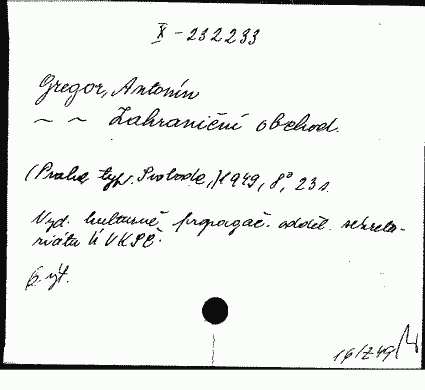 X - 232233
Gregor, Antonín
~ ~ Zahraniční obchod.
(Praha, typ. Svoboda,) 1949, 8°, 23 s.
Vyd. kulturně propagač. odděl. sekreta-
riátu ÚVKSČ.
16/Z49